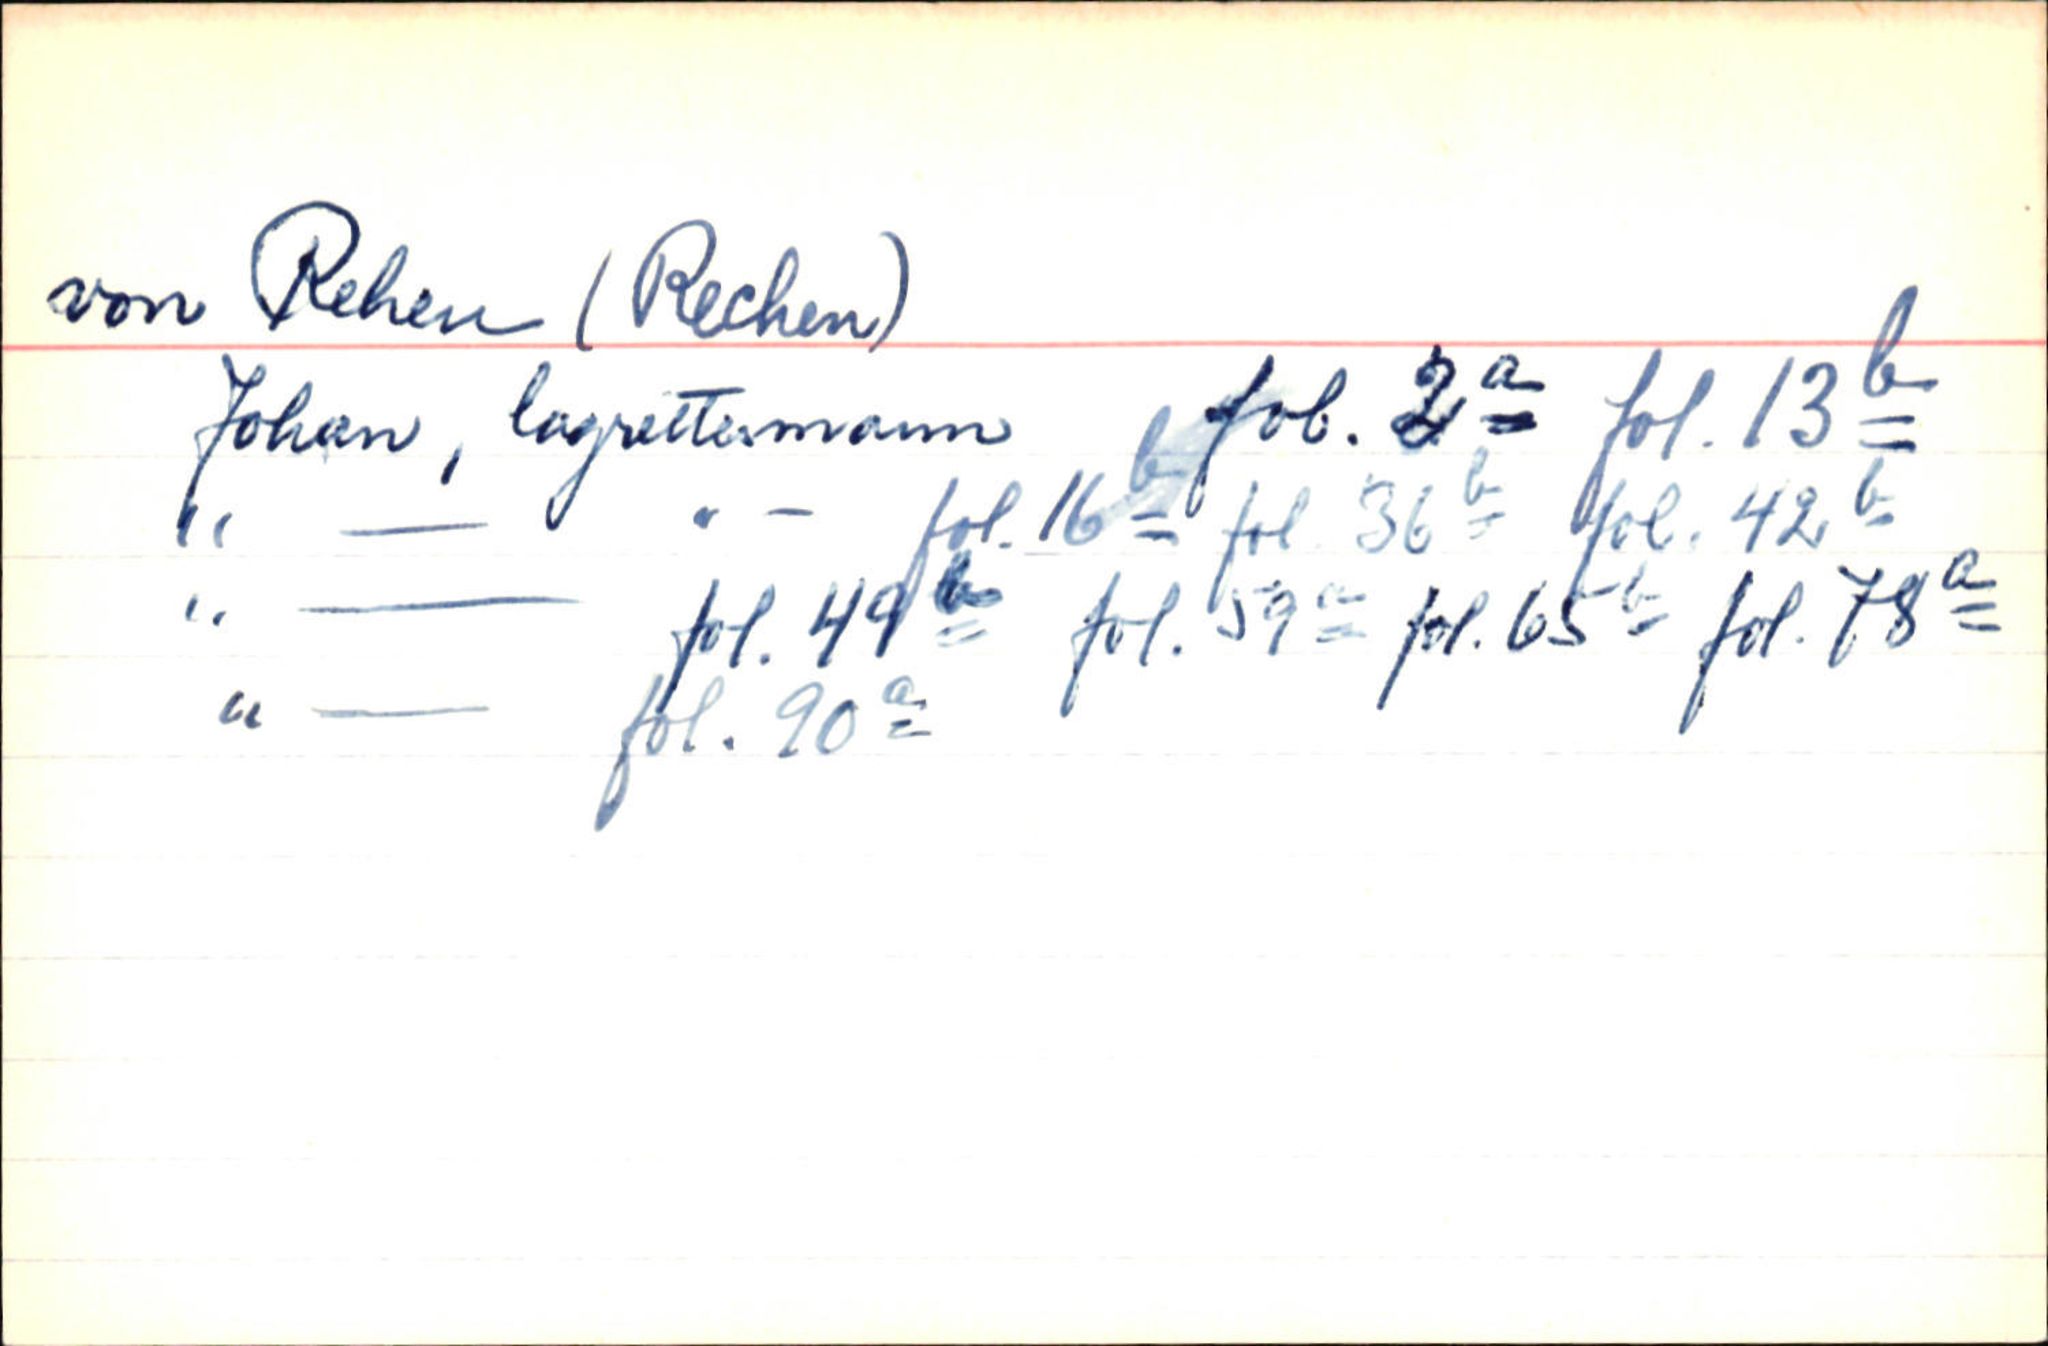 von Rehen (Rechen)
Johan, lagrettesmann fol. 2a fol. 13b
" — " — fol. 16b fol. 36b fol. 42b
" — fol. 49b fol. 59a fol. 65b fol. 78a
" — fol. 90a